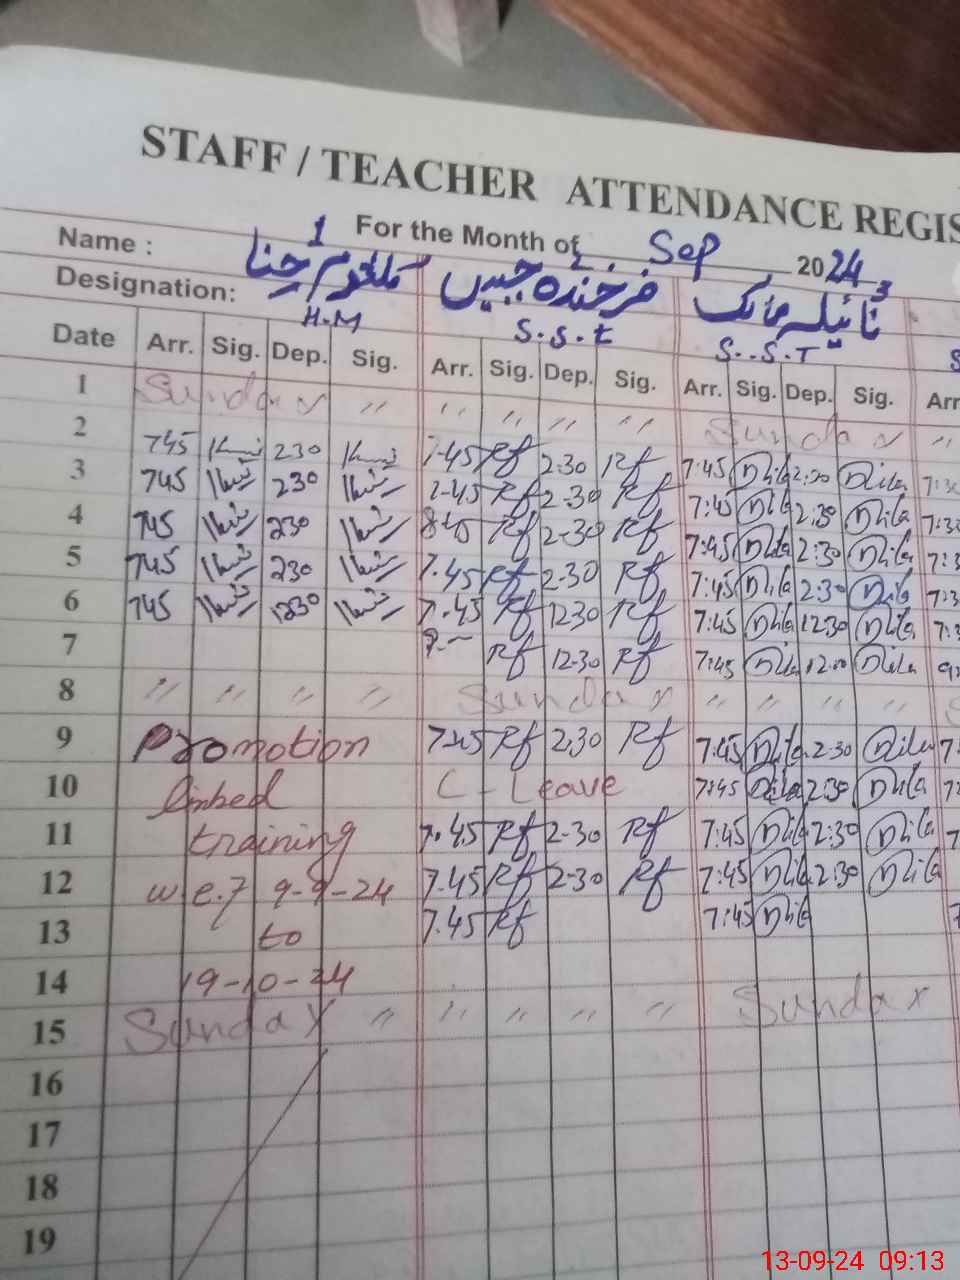 STAFF / TEACHER ATTENDANCE REGIS
For the Month of Sep 2024
Name : 1 3
فرخندہ جبیں نائیلہ مانک
Designation: H.M S.S.t S.S.T
Date Arr. Sig. Dep. Sig. Arr. Sig. Dep. Sig. Arr. Sig. Dep. Sig. Arr
1 Sunday " " " " " Sunday "
2 745 230 7-45 Rf 2-30 Rf 7:45 Nila 2:30 Nila
3 745 230 7-45 Rf 2-30 Rf 7:45 Nila 2:30 Nila
4 745 230 Rf 2-30 Rf 7:45 Nila 2:30 Nila
5 745 230 7.45 Rf 2-30 Rf 7:45 Nila 2:30 Nila
6 745 1230 7.45 Rf 12.30 Rf 7:45 Nila 12:30 Nila
7 Rf 12-30 Rf 7:45 Nila Nila
8 " " " " Sunday " " " "
9 Promotion 7:45 Rf 2.30 Rf 7:45 Nila 2:30 Nila
10 linked C-Leave 7:45 Nila 2:30 Nila
11 training 7.45 Rf 2-30 Rf 7:45 Nila 2:30 Nila
12 w.e.f 9-9-24 7.45 Rf 2-30 Rf 7:45 Nila 2:30 Nila
13 to 7.45 Rf 7:45 Nila
14 19-10-24
15 Sunday " " " " " Sunday
16
17
18
19
13-09-24 09:13